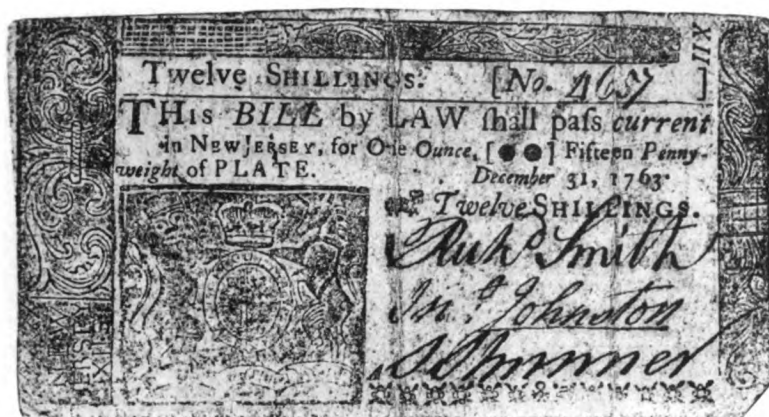 XII
Twelve SHILLINGS. [No. 4657 ]
THis BILL by LAW ſhall paſs current
in NEW JERSEY, for One Ounce, [● ●] Fifteen Penny-
weight of PLATE. December 31, 1763.
Twelve SHILLINGS.
Richd Smith
Jno Johnston
S Skinner
JERSEY